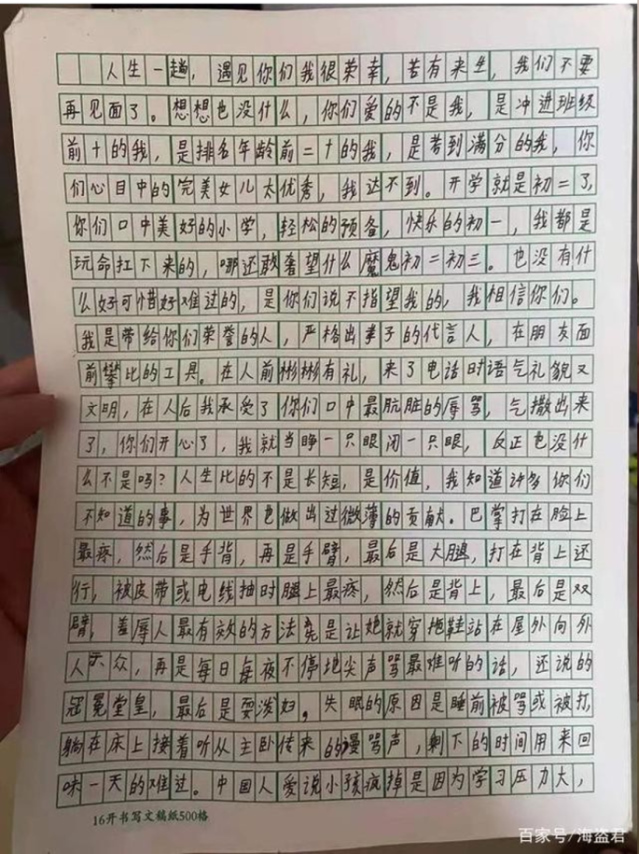 人生一趟，遇见你们我很荣幸，苦有来生，我们不要
再见面了。想想也没什么，你们爱的不是我，是冲进班级
前十的我，是排名年龄前二十的我，是考到满分的我，你
们心目中的完美女儿太优秀，我达不到。开学就是初二了，
你们口中美好的小学，轻松的预备，快乐的初一，我都是
玩命扛下来的，哪还敢奢望什么魔鬼初二初三。也没有什
么好可惜好难过的，是你们说不指望我的，我相信你们。
我是带给你们荣誉的人，严格出孝子的代言人，在朋友面
前攀比的工具。在人前彬彬有礼，来了电话时语气礼貌又
文明，在人后我承受了你们口中最肮脏的辱骂，气撒出来
了，你们开心了，我就当睁一只眼闭一只眼，反正也没什
么不是吗？人生比的不是长短，是价值，我知道许多你们
不知道的事，为世界也做出过微薄的贡献。巴掌打在脸上
最疼，然后是手背，再是手臂，最后是大腿，打在背上还
行，被皮带或电线抽时腿上最疼，然后是背上，最后是双
臂，羞辱人最有效的方法是让她就穿拖鞋站在屋外向外
人示众，再是每日每夜不停地尖声骂最难听的话，还说的
冠冕堂皇，最后是耍泼妇。失眠的原因是睡前被骂或被打，
躺在床上接着听从主卧传来的谩骂声，剩下的时间用来回
味一天的难过。中国人爱说小孩疯掉是因为学习压力大，
16开书写文稿纸500格
百家号/海盗君